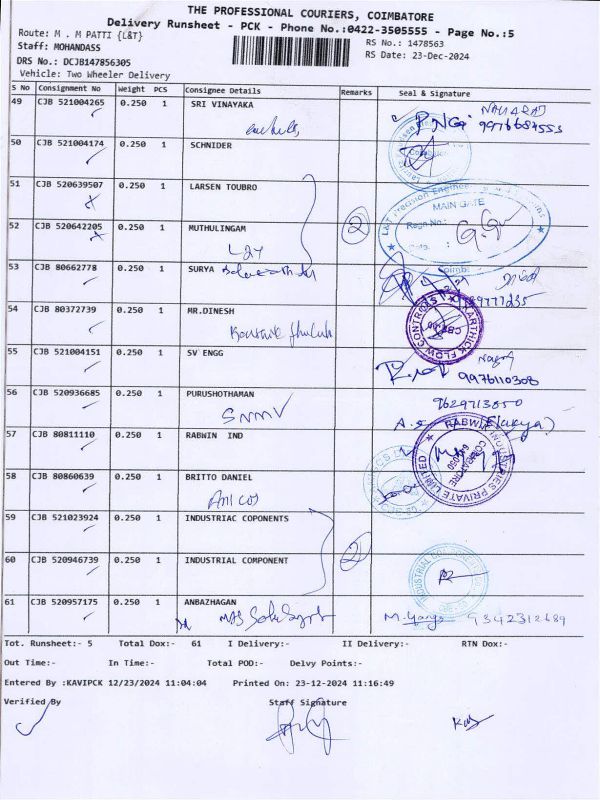 THE PROFESSIONAL COURIERS, COIMBATORE
Delivery Runsheet - PCK - Phone No.:0422-3505555 - Page No.:5
Route: M . M PATTI {L&T}
RS No.: 1478563
Staff: MOHANDASS
RS Date: 23-Dec-2024
DRS No.: DCJB147856305
Vehicle: Two Wheeler Delivery
S No Consignment No Weight PCS Consignee Details Remarks Seal & Signature
49 CJB 521004265 0.250 1 SRI VINAYAKA
50 CJB 521004174 0.250 1 SCHNIDER
51 CJB 520639507 0.250 1 LARSEN TOUBRO
MAIN GATE
52 CJB 520642205 0.250 1 MUTHULINGAM 2
L&T
53 CJB 80662778 0.250 1 SURYA
54 CJB 80372739 0.250 1 MR.DINESH
KARTHICK FLOW CONTROLS
55 CJB 521004151 0.250 1 SV ENGG
9976110308
56 CJB 520936685 0.250 1 PURUSHOTHAMAN
SNMV
57 CJB 80811110 0.250 1 RABWIN IND
RABWIN INDUSTRIES PRIVATE LIMITED
COIMBATORE
58 CJB 80860639 0.250 1 BRITTO DANIEL
59 CJB 521023924 0.250 1 INDUSTRIAC COPONENTS
60 CJB 520946739 0.250 1 INDUSTRIAL COMPONENT 2
61 CJB 520957175 0.250 1 ANBAZHAGAN
9342312689
Tot. Runsheet:- 5 Total Dox:- 61 I Delivery:- II Delivery:- RTN Dox:-
Out Time:- In Time:- Total POD:- Delvy Points:-
Entered By :KAVIPCK 12/23/2024 11:04:04 Printed On: 23-12-2024 11:16:49
Verified By Staff Signature